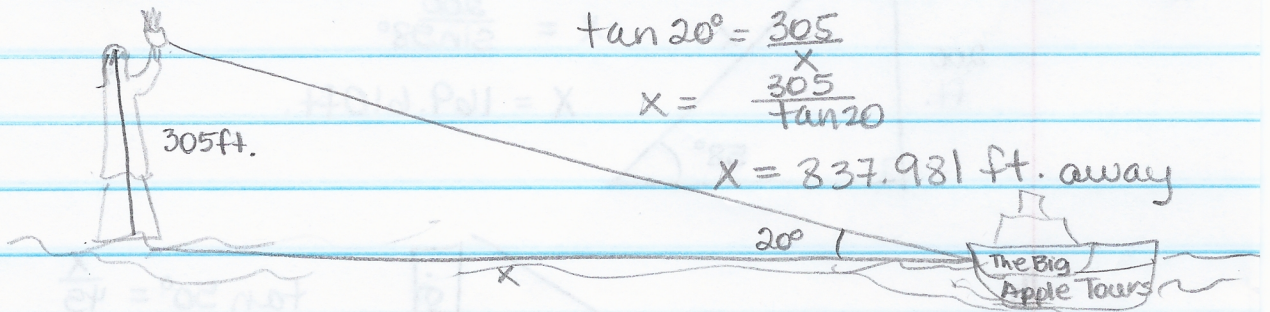 tan 20° = 305
x
305ft.
x = 305
tan20
x = 837.981 ft. away
20°
x
The Big
Apple Tours